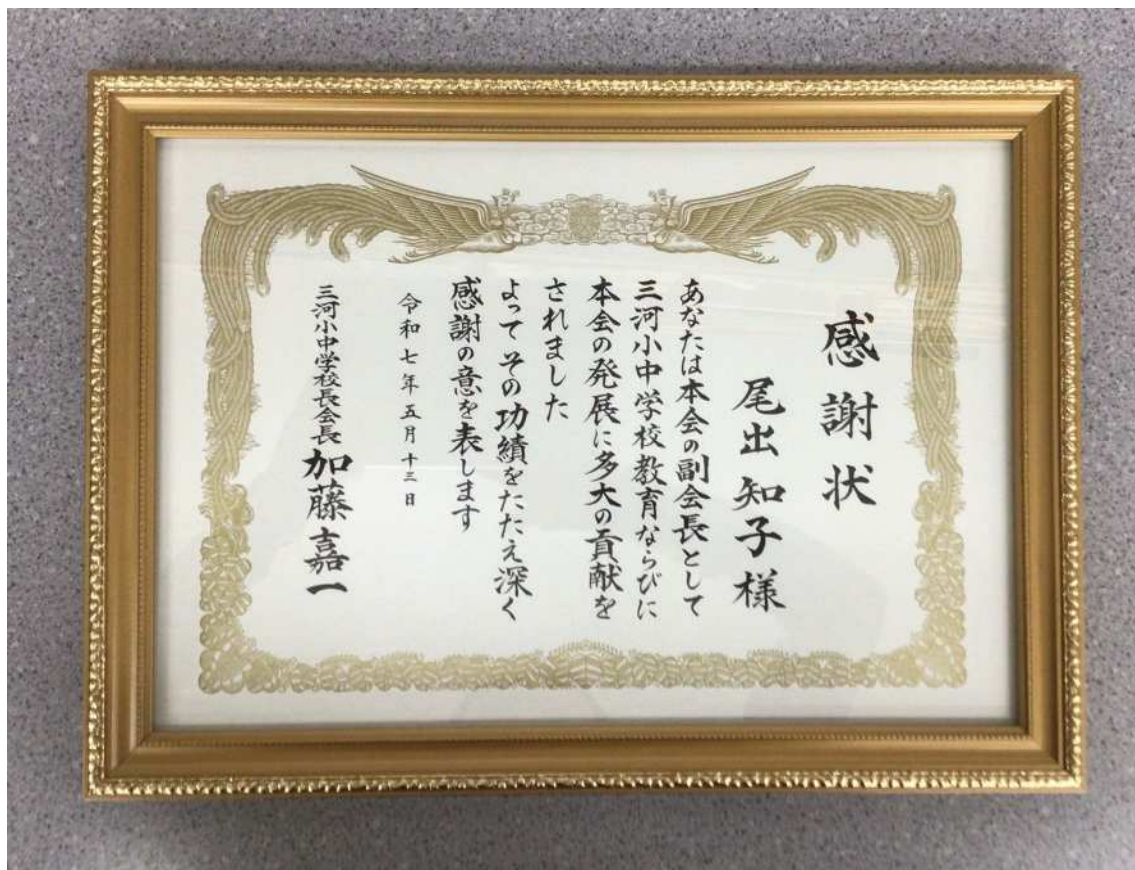 感謝状
尾出知子様
あなたは本会の副会長として
三河小中学校教育ならびに
本会の発展に多大の貢献を
されました
よって その功績をたたえ深く
感謝の意を表します
令和七年五月十三日
三河小中学校長会長 加藤嘉一